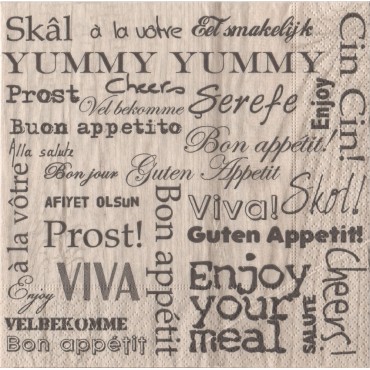 Skâl à la vôtre Eet smakelijk
YUMMY YUMMY
Prost Cheers
Vel bekomme Şerefe
Enjoy
Cin Cin!
Buon appetito
Bon appétit!
Alla salute
Bon jour Guten Appetit
à la vôtre
AFIYET OLSUN
Bon appétit
Viva! Skol!
Prost!
Guten Appetit!
Enjoy
VIVA
Enjoy
your
meal
SALUTE
Cheers!
VELBEKOMME
Bon appétit